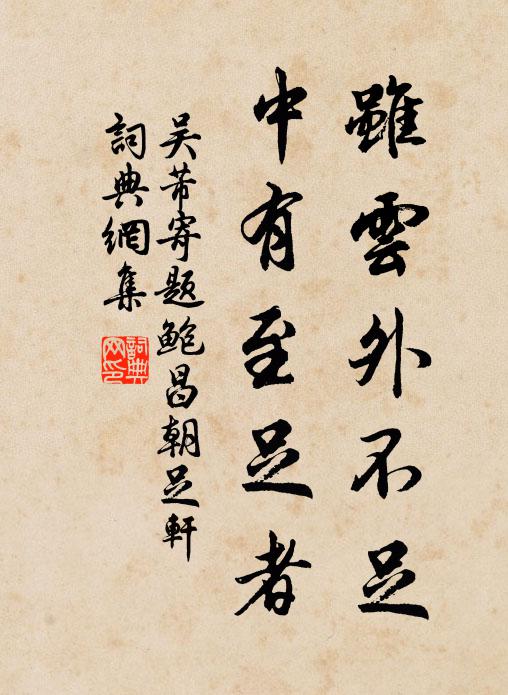 雖雲外不足
中有至足者
吴芾寄題鮑昌朝足軒
詞典網集
詞典网印